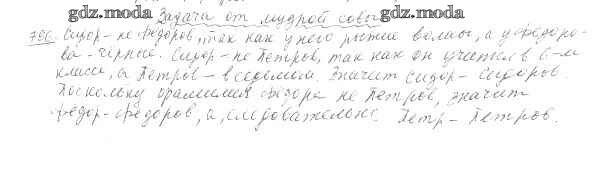 gdz.moda gdz.moda gdz.moda
Задачи от мудрой совы
786. Сидор - не Федоров, так как у него рыжие волосы, а у Федоро-
ва - чёрные. Сидор - не Петров, так как он учится в 6-м
классе, а Петров - в седьмом. Значит Сидор - Сидоров.
Поскольку фамилия Фёдора не Петров, значит
Фёдор - Федоров, а, следовательно Петр - Петров.